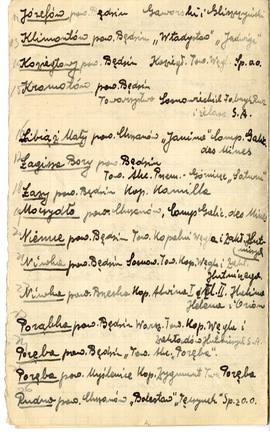 Józefów pow. Będzin Gaworski i Gliszczyński
Klimontów pow. Będzin „Władysław" „Jadwiga"
Koziegłowy pow. Będzin Koziegł. Tow. Węgl. Sp. z o.o.
Kramołów pow. Będzin
Towarzystwo Sosnowieckich Fabryk Rur
i żelaza S.A.
Libiąż Mały pow. Chrzanów „Janina" Comp. Galic.
des Mines
Łagisza Bory pow. Będzin
Tow. Akc. Przem. Górnicz. „Saturn"
Łazy pow. Będzin Kop. Kamilla
pow. Chrzanów, Comp. Galic. des Mines
Niemce pow. Będzin Tow. Kopalni Węgla i Zakł. Hut-
niczych
Niwka pow. Będzin Sosnow. Tow. Kop. Węgla i Zakł.
Hutniczych
Niwka pow. Kop. Alwina I i II, Halina
Helena i Orion
Porąbka pow. Będzin Warsz. Tow. Kop. Węgla i
Zakładów Hutniczych S.A.
Poręba pow. Będzin „Tow. Akc. Poręba".
Poręba pow. Myślenice Kop. Zygmunt Tow. Poręba
Rudno pow. Chrzanów „Bolesław" „Tęczynek" Sp. z o.o.